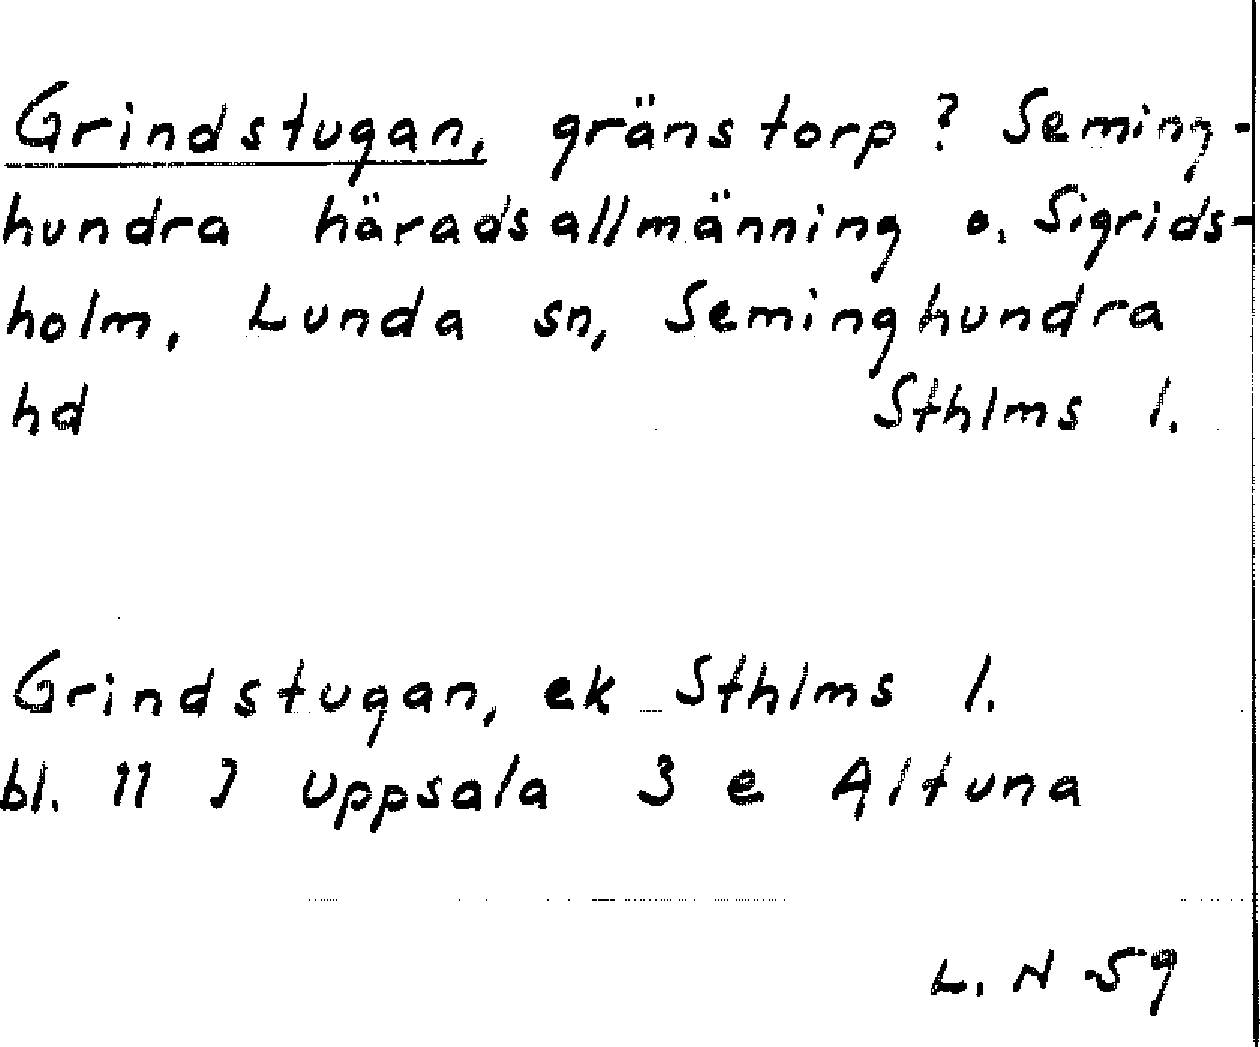 Grindstugan, gränstorp? Seming-
hundra häradsallmänning o. Sigrids-
holm, Lunda sn, Seminghundra
hd Sthlms l.
Grindstugan, ek Sthlms l.
bl. 11 J Uppsala 3 e Altuna
L. N 59